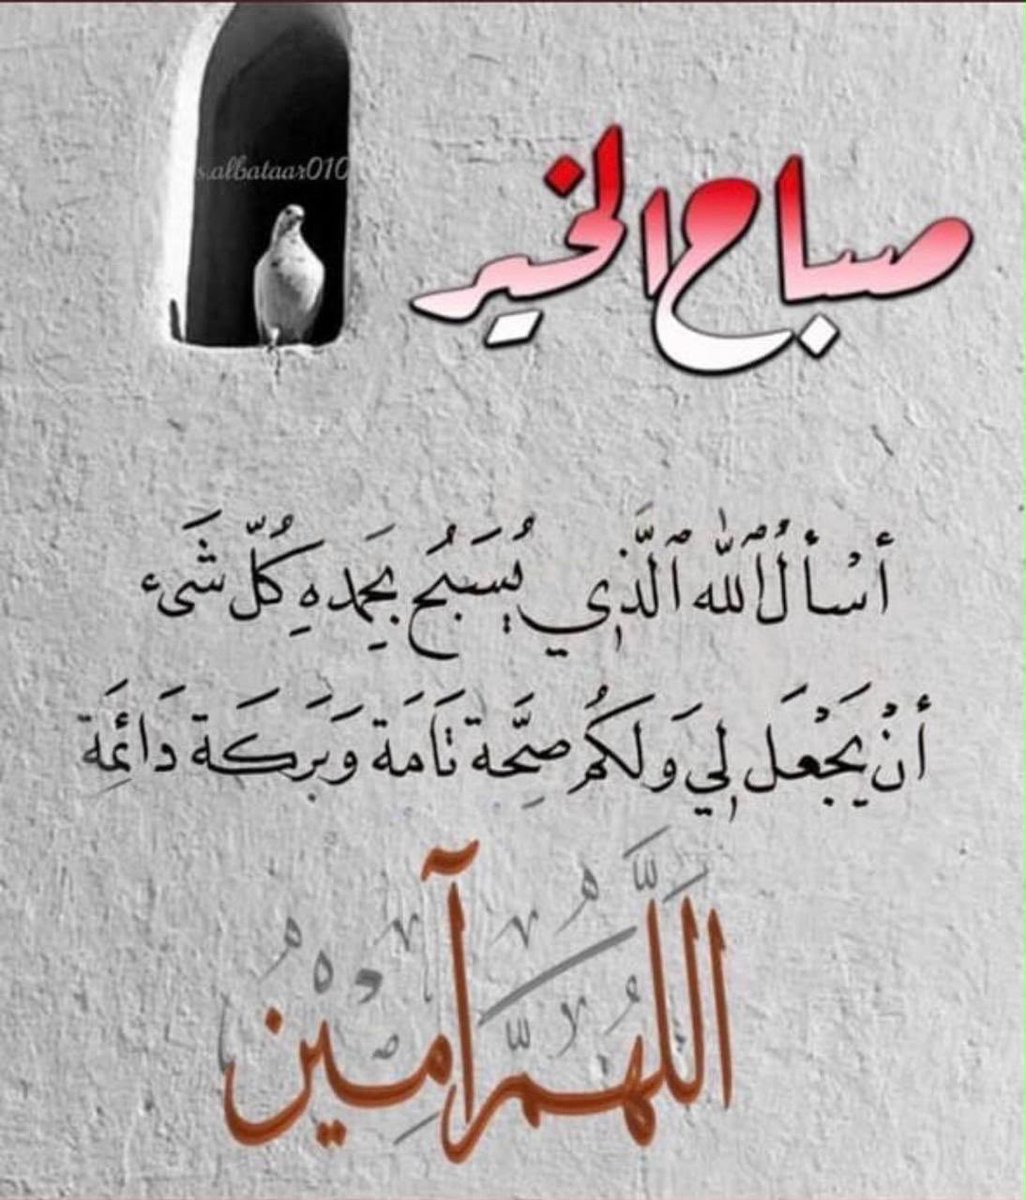 s.albataar010
صباح الخير
أسْأَلُ ٱللّٰهَ ٱلَّذِي يُسَبَحُ بِحَمدهِ كُلّ شَىء
أنْ يَجْعَل لِي وَلَكُم صِحَّة تَامَة وَبَرَكَة دَائِمَة
اللَّهُمَّ آمِيْن